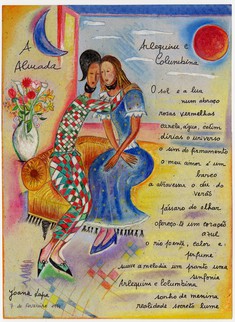 A
Alvorada
Arlequim e
Columbina
O sol e a lua
num abraço
rosas vermelhas
canela, água, cetim
dirias o universo
o sim do firmamento
o meu amor é um
barco
a atravessar o céu do
verão
pássaro do olhar
ofereço-te um coração
azul
o rio ponte, calor e
perfume
suave a melodia um ponto uma
sinfonia
Arlequim e Columbina
sonho de menina
realidade secreto lume
Joana Lapa
de fevereiro